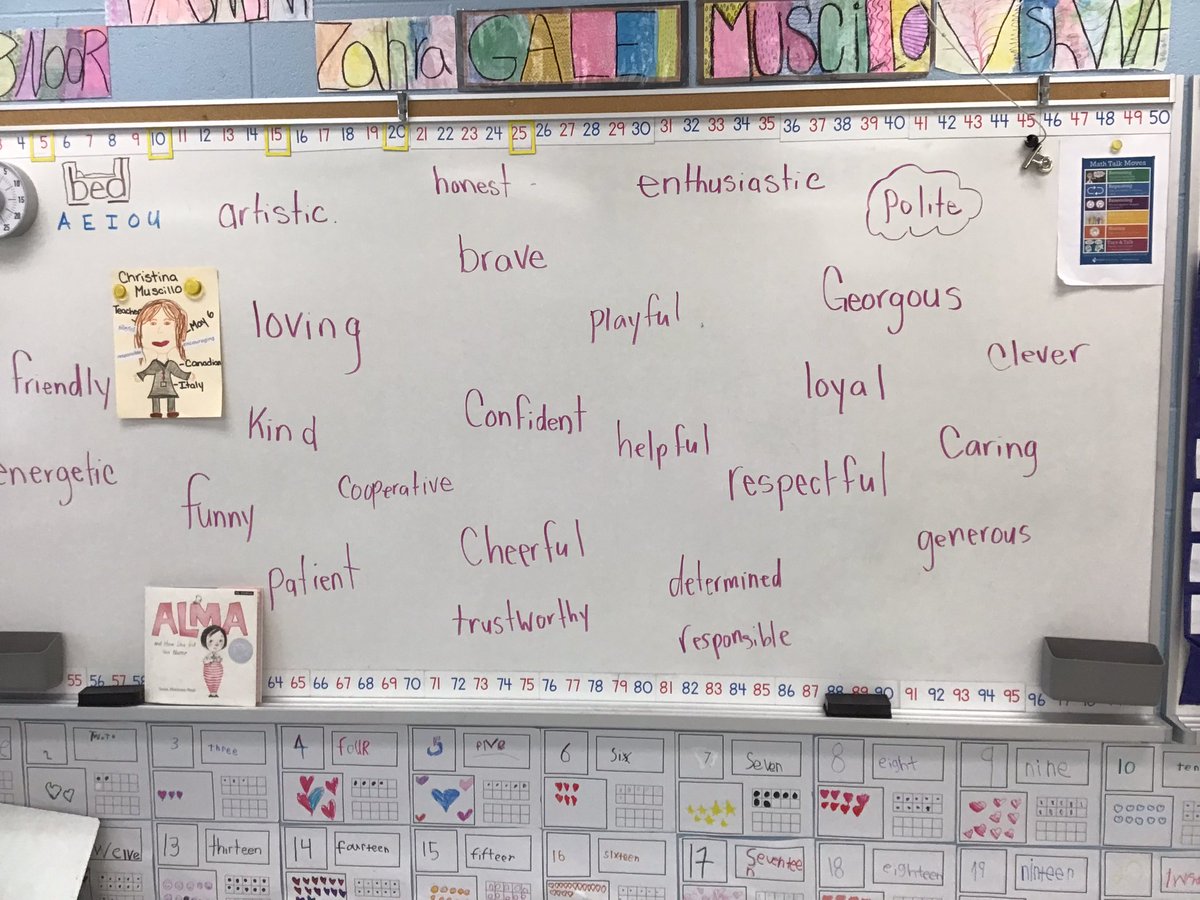 BNOOR
Zahra
GALE
MUSCILLO
VShWA
4 5 6 7 8 9 10 11 12 13 14 15 16 17 18 19 20 21 22 23 24 25 26 27 28 29 30 31 32 33 34 35 36 37 38 39 40 41 42 43 44 45 46 47 48 49 50
bed
A E I O U
artistic.
honest
enthusiastic
Polite
Math Talk Moves
brave
Christina
Muscillo
Teacher
May 6
Canadian
Italy
loving
playful
Georgous
Clever
friendly
Kind
Confident
helpful
loyal
Caring
energetic
funny
Cooperative
respectful
Patient
Cheerful
determined
generous
trustworthy
responsible
ALMA
and How She Got
Her Name
55 56 57 58
64 65 66 67 68 69 70 71 72 73 74 75 76 77 78 79 80 81 82 83 84 85 86 87 88 89 90 91 92 93 94 95 96
2
3 three
4 four
5 five
6 six
7 Seven
8 eight
9 nine
10 ten
welve
13 thirteen
14 fourteen
15 fifteen
16 sixteen
17 Seventeen
18 eighteen
19 ninteen